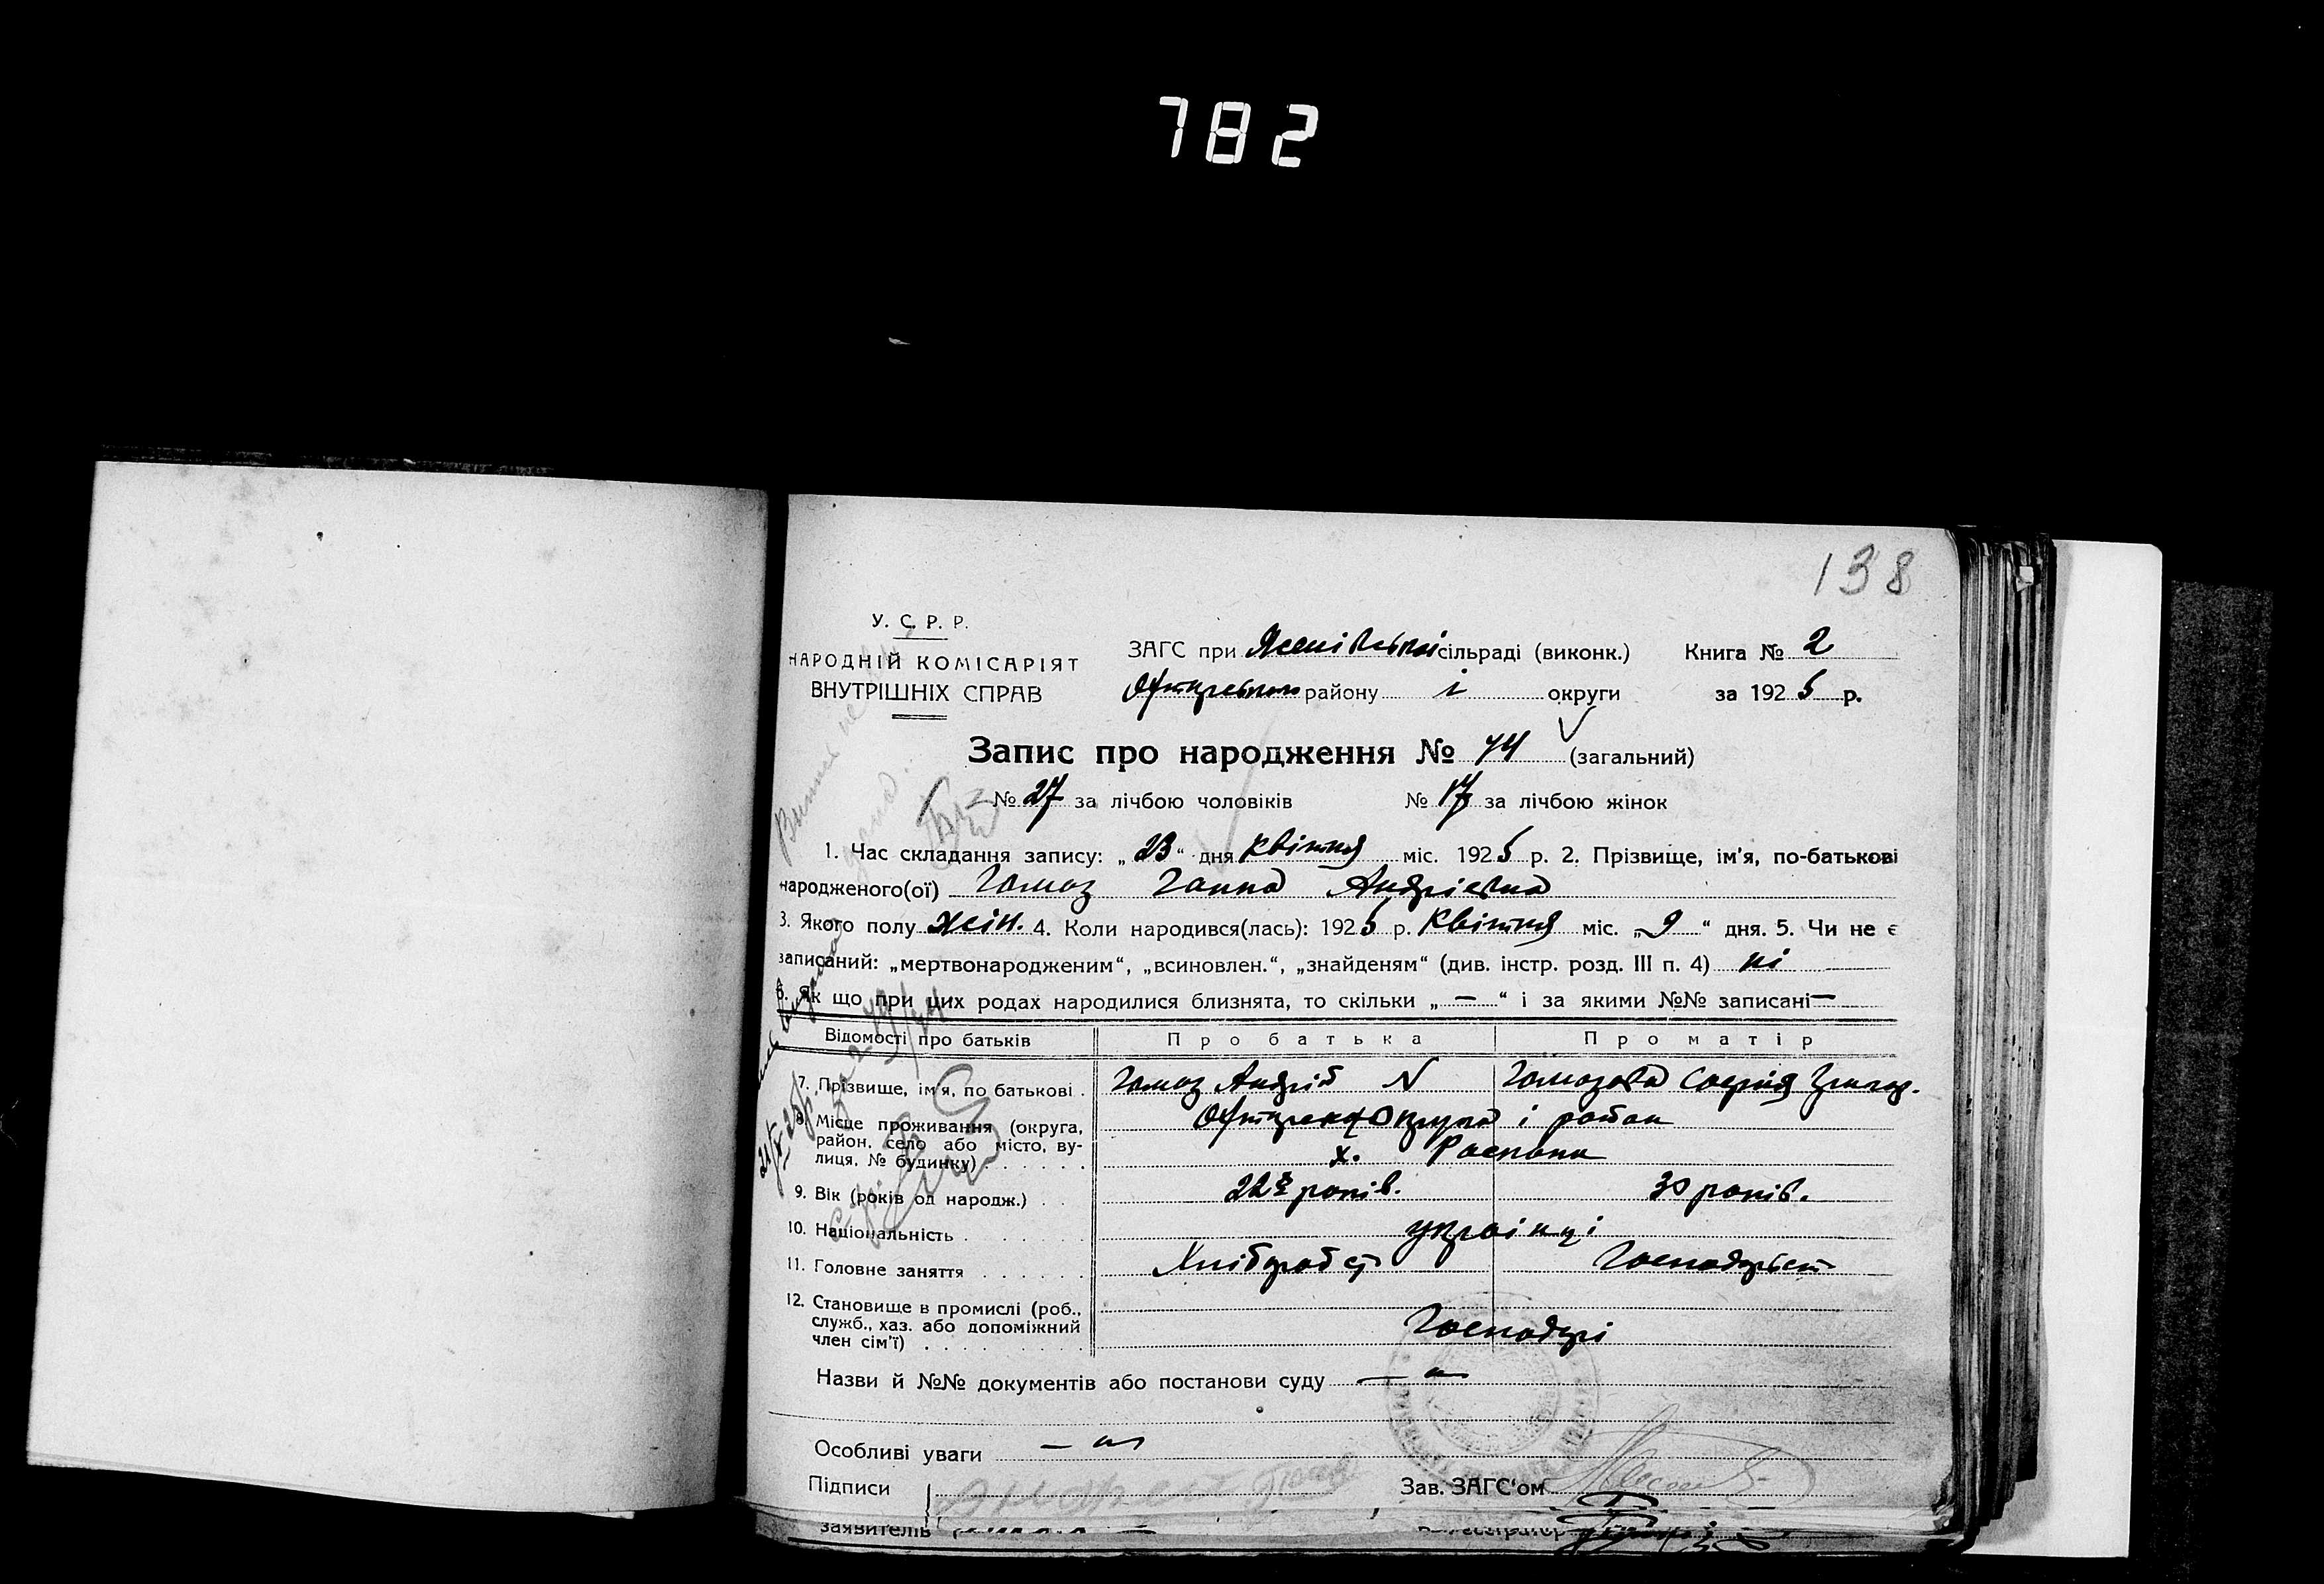 782
138
У. С. Р. Р.
НАРОДНІЙ КОМІСАРІЯТ
ВНУТРІШНІХ СПРАВ
ЗАГС при сільраді (виконк.) Книга № 2
району і округи за 1925 р.
Запис про народження № 44 (загальний)
№ 27 за лічбою чоловіків № 17 за лічбою жінок
1. Час складання запису: „23“ дня квітня міс. 1925 р. 2. Прізвище, ім'я, по-батькові
народженого(ої) Гомоз Ганна Андріевна
3. Якого полу жін. 4. Коли народився(лась): 1925 р. Квітня міс. „9“ дня. 5. Чи не є
записаний: „мертвонародженим“, „всиновлен.“, „знайденям“ (див. інстр. розд. III п. 4) ні
6. Як що при цих родах народилися близнята, то скільки „ — “ і за якими №№ записані —
Відомості про батьків Про батька Про матір
7. Прізвище, ім'я, по батькові . Гомоз Андрій N Гомозова Софія Григор.
8. Місце проживання (округа, округа і район
район, село або місто, ву-
лиця, № будинку) . . . . . . х.
9. Вік (років од народж.) . . 22 років. 30 років.
10. Національність . . . . . . українці
11. Головне заняття . . . . . . Хлібороб
12. Становище в промислі (роб.,
служб., хаз. або допоміжний Господарі
член сім'ї) . . . . . . . . .
Назви й №№ документів або постанови суду —
Особливі уваги —
Підписи Зав. ЗАГС'ом
заявителів